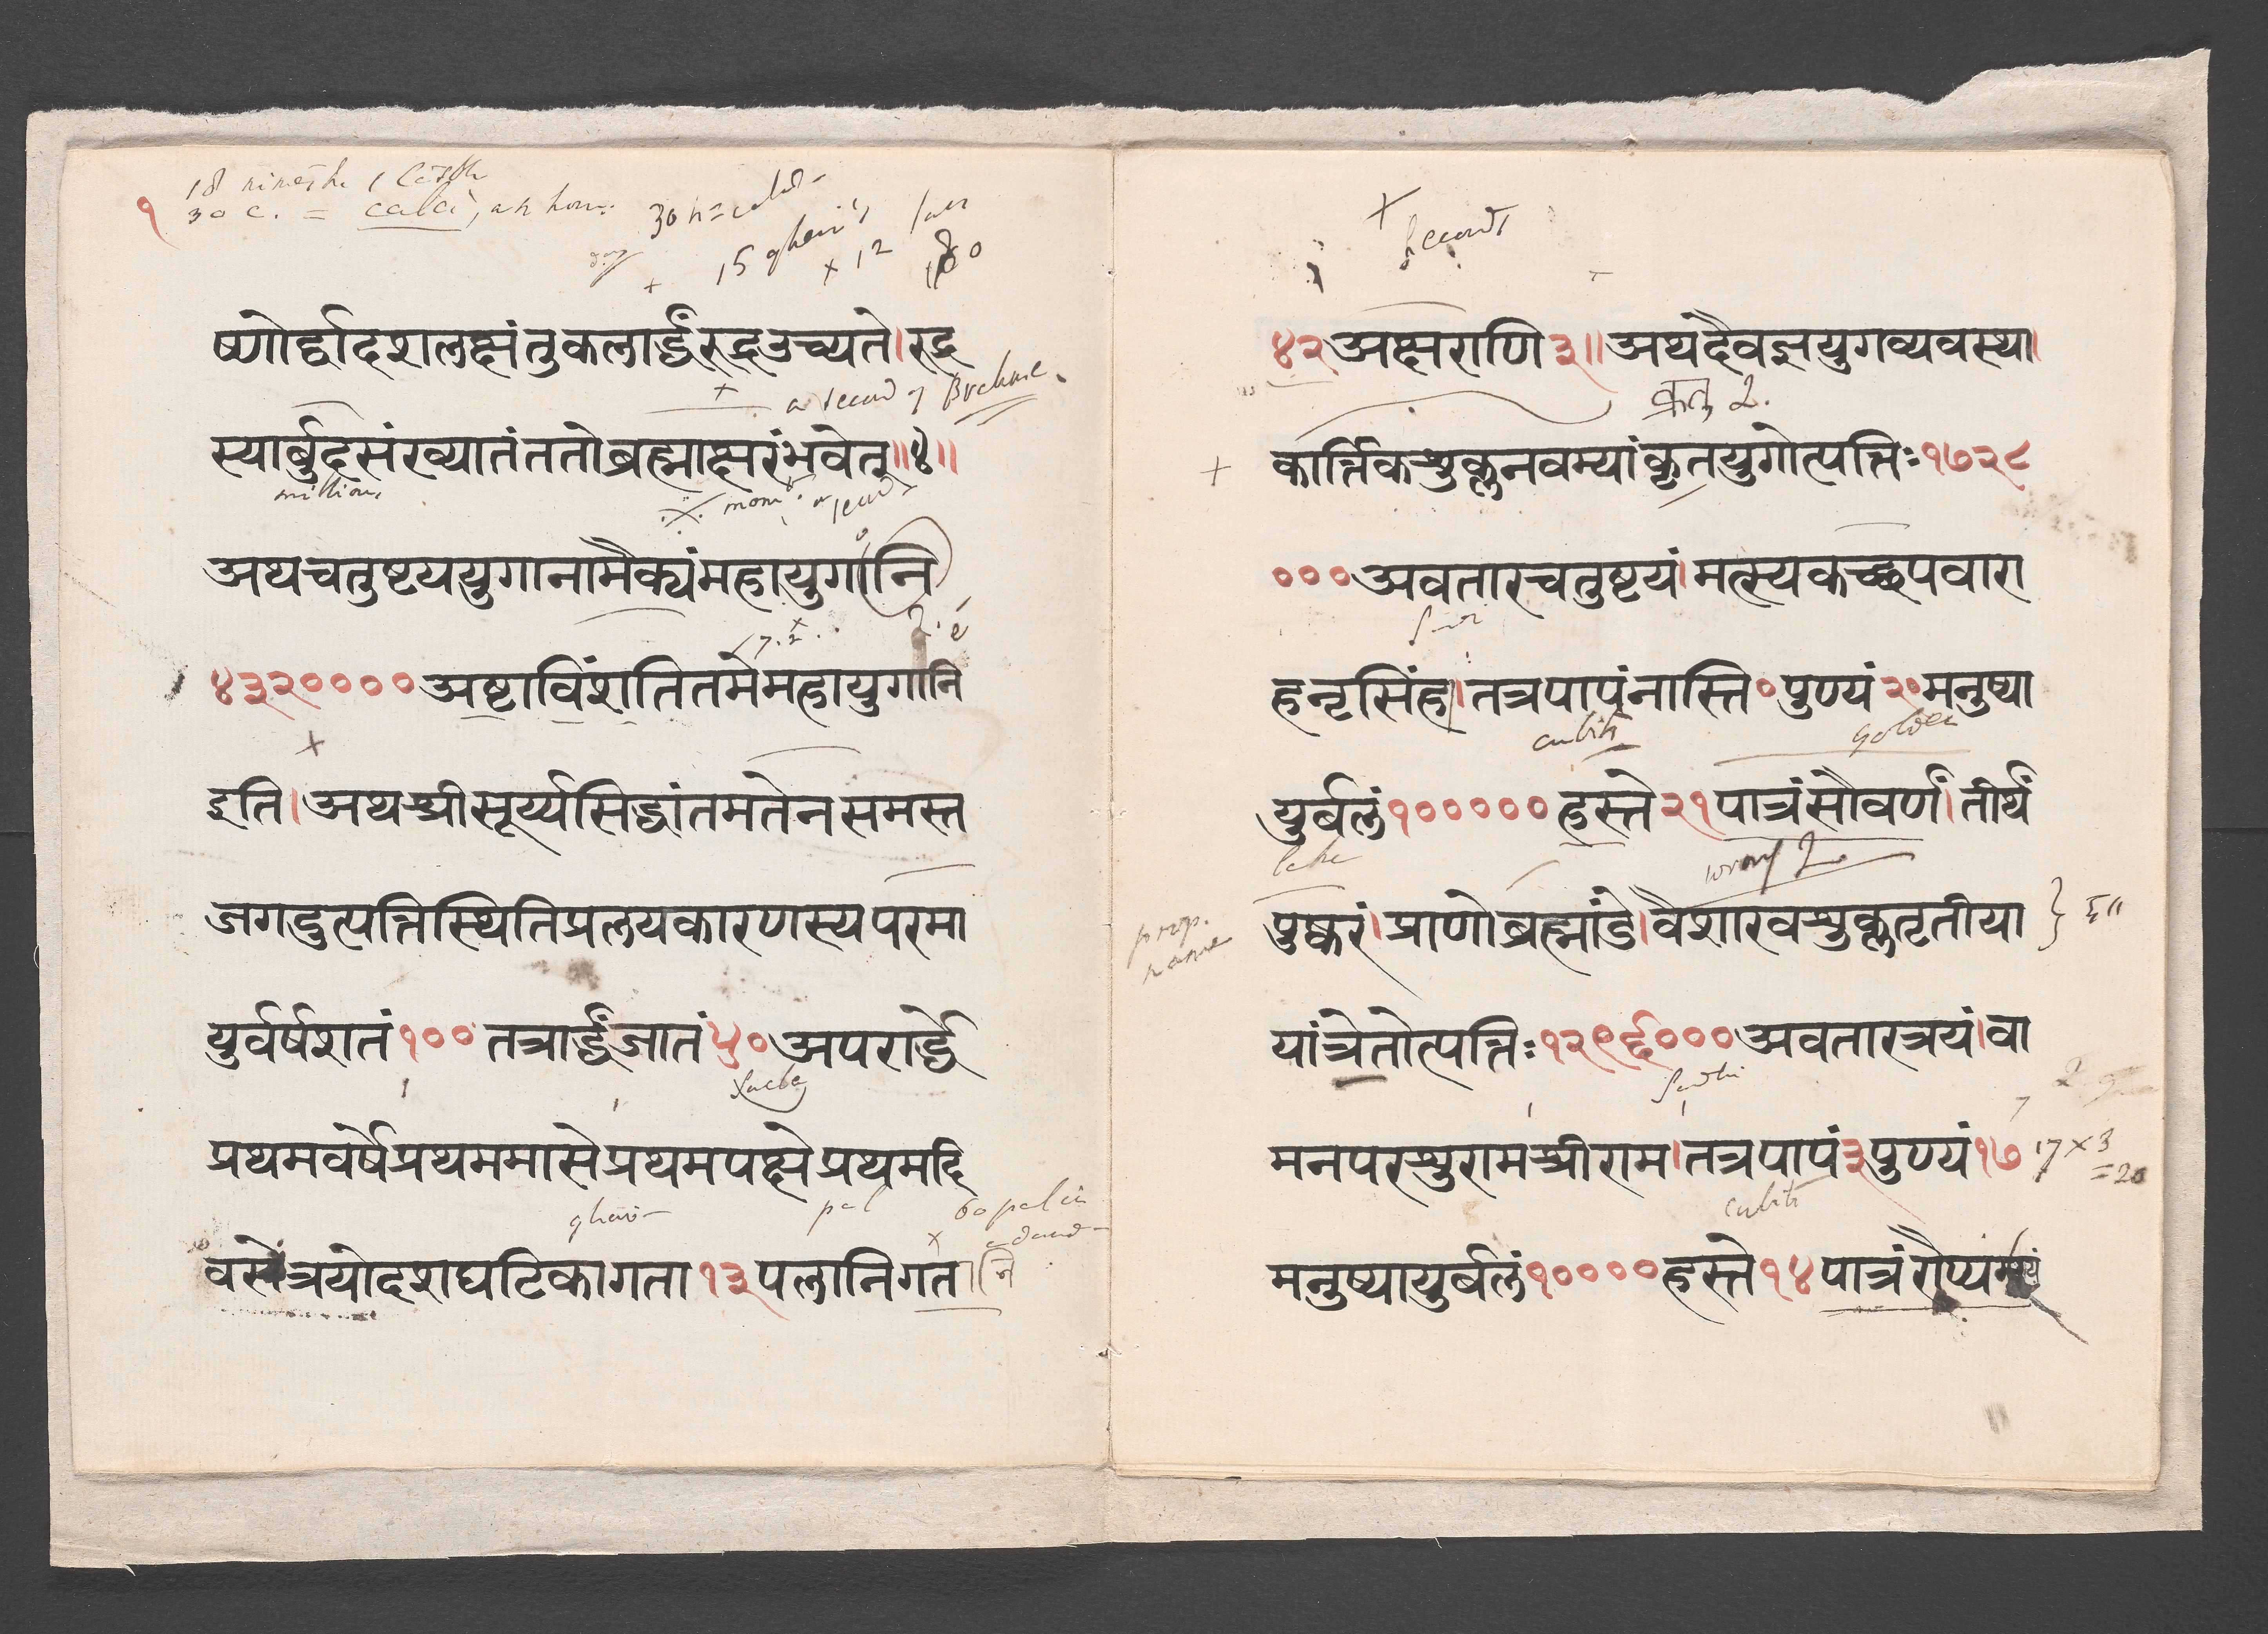 १
18 nimesha 1 Castha
30 C. = calà, an hour.
30 h = cala
day
15 gharis
x 12
180
ष्णोर्द्वादशलक्षंतुकलार्द्धंरुद्रउच्यते।रुद्र
a second of Brahma.
स्यार्बुदसंख्यातंततोब्रह्माक्षरंभवेत्॥४॥
million,
अथचतुष्टययुगानामैक्यंमहायुगानि
४३२००००अष्टाविंशतितमेमहायुगानि
इति।अथश्रीसूर्य्यसिद्धांतमतेनसमस्त
जगदुत्पत्तिस्थितिप्रलयकारणस्यपरमा
युर्वर्षशतं१००तत्रार्द्धंजातं५०अपरार्द्धे
प्रथमवर्षेप्रथममासेप्रथमपक्षेप्रथमदि
ghari pal 60 pal in
वसेत्रयोदशघटिकागता१३पलानिगतानि
x
Second
४२अक्षराणि३॥अथदैवज्ञयुगव्यवस्था।
कार्त्तिकशुक्लनवम्यांकृतयुगोत्पत्तिः१७२८
०००अवतारचतुष्टयं।मत्स्यकच्छपवारा
हनृसिंह।तत्रपापंनास्ति०पुण्यं२०मनुष्या
cubits golden
युर्बलं१०००००हस्ते२१पात्रंसौवर्णं।तीर्थं
lake wrong 2
prop. name
पुष्करं।प्राणोब्रह्मांडे।वैशाखशुक्लतृतीया
यांत्रेतोत्पत्तिः१२९६०००अवतारत्रयं।वा
मनपरशुरामश्रीराम।तत्रपापं३पुण्यं१७
17 x 3
= 20
cubits
मनुष्यायुर्बलं१००००हस्ते१४पात्रंरौप्यमयं